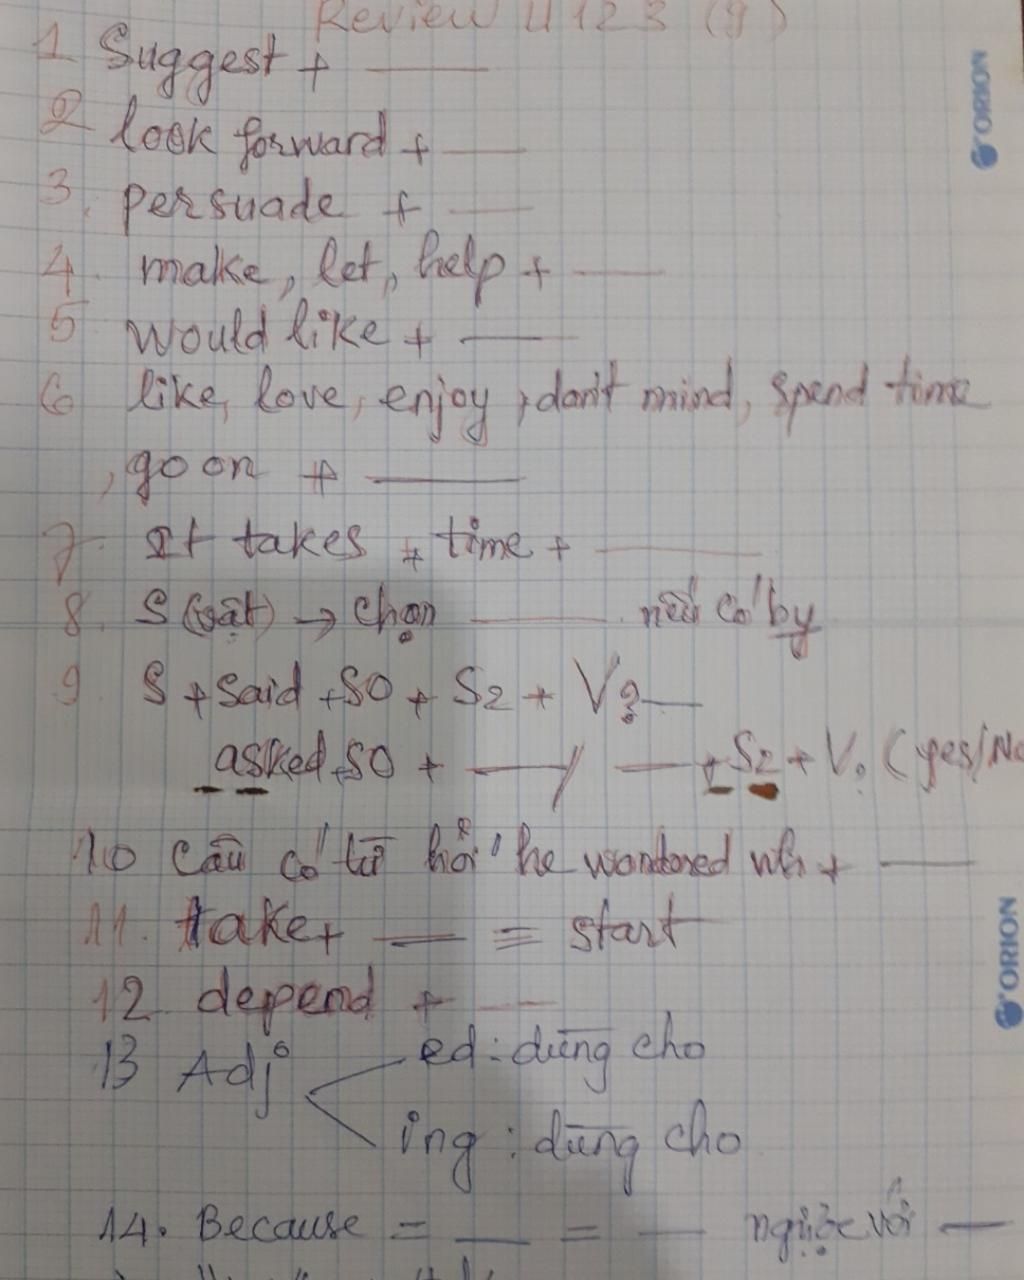 Review U 1 2 3 (9)
1 Suggest + ___
ORION
2 look forward + ___
3. persuade + ___
4. make, let, help + ___
5 would like + ___
6 like, love, enjoy, don't mind, spend time
, go on + ___
7. It takes + time + ___
8. S (vật) → chọn ___ nếu có by
9. S + said + SO + S2 + V? ___
asked + SO + ___ / ___ + S2 + V? (yes/No
10 câu có từ hỏi he wondered wh + ___
ORION
11. take + ___ ≡ start
12 depend + ___
13 Adj
ed : dùng cho
ing : dùng cho
14. Because = ___ = ___ ngược với ___